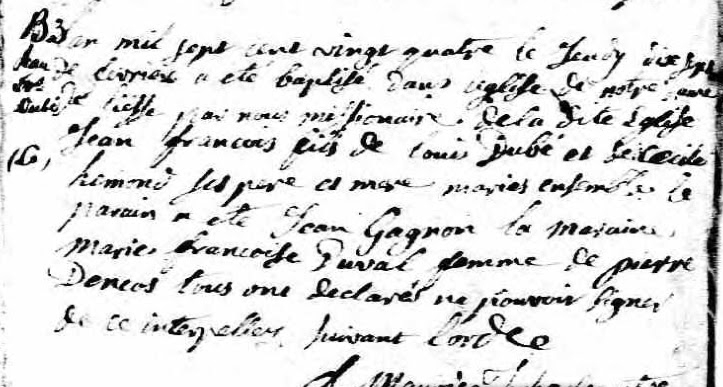 B 3
Jean
frs
Dubé
(6)
Lan mil sept cent vingt quatre le Jeudy dix sept
de fevrier a eté baptisé dans leglise de notre dame
de liesse par nous missionaire de la dite Eglise
Jean francois fils de louis Dubé et de Cecile
hemond ses pere et mere mariés ensemble le
parain a eté Jean Gagnon la maraine
marie francoise Duval femme de pierre
Deneos tous ont declarés ne pouvoir signer
de ce interpelles suivant lord